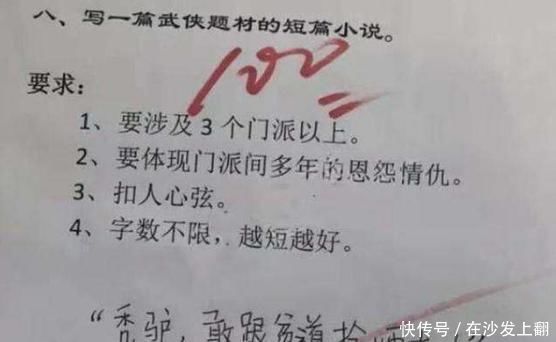 八、写一篇武侠题材的短篇小说。
100
要求：
1、要涉及 3 个门派以上。
2、要体现门派间多年的恩怨情仇。
3、扣人心弦。
4、字数不限，越短越好。
“秃驴，敢跟贫道抢
快传号 / 在沙发上翻